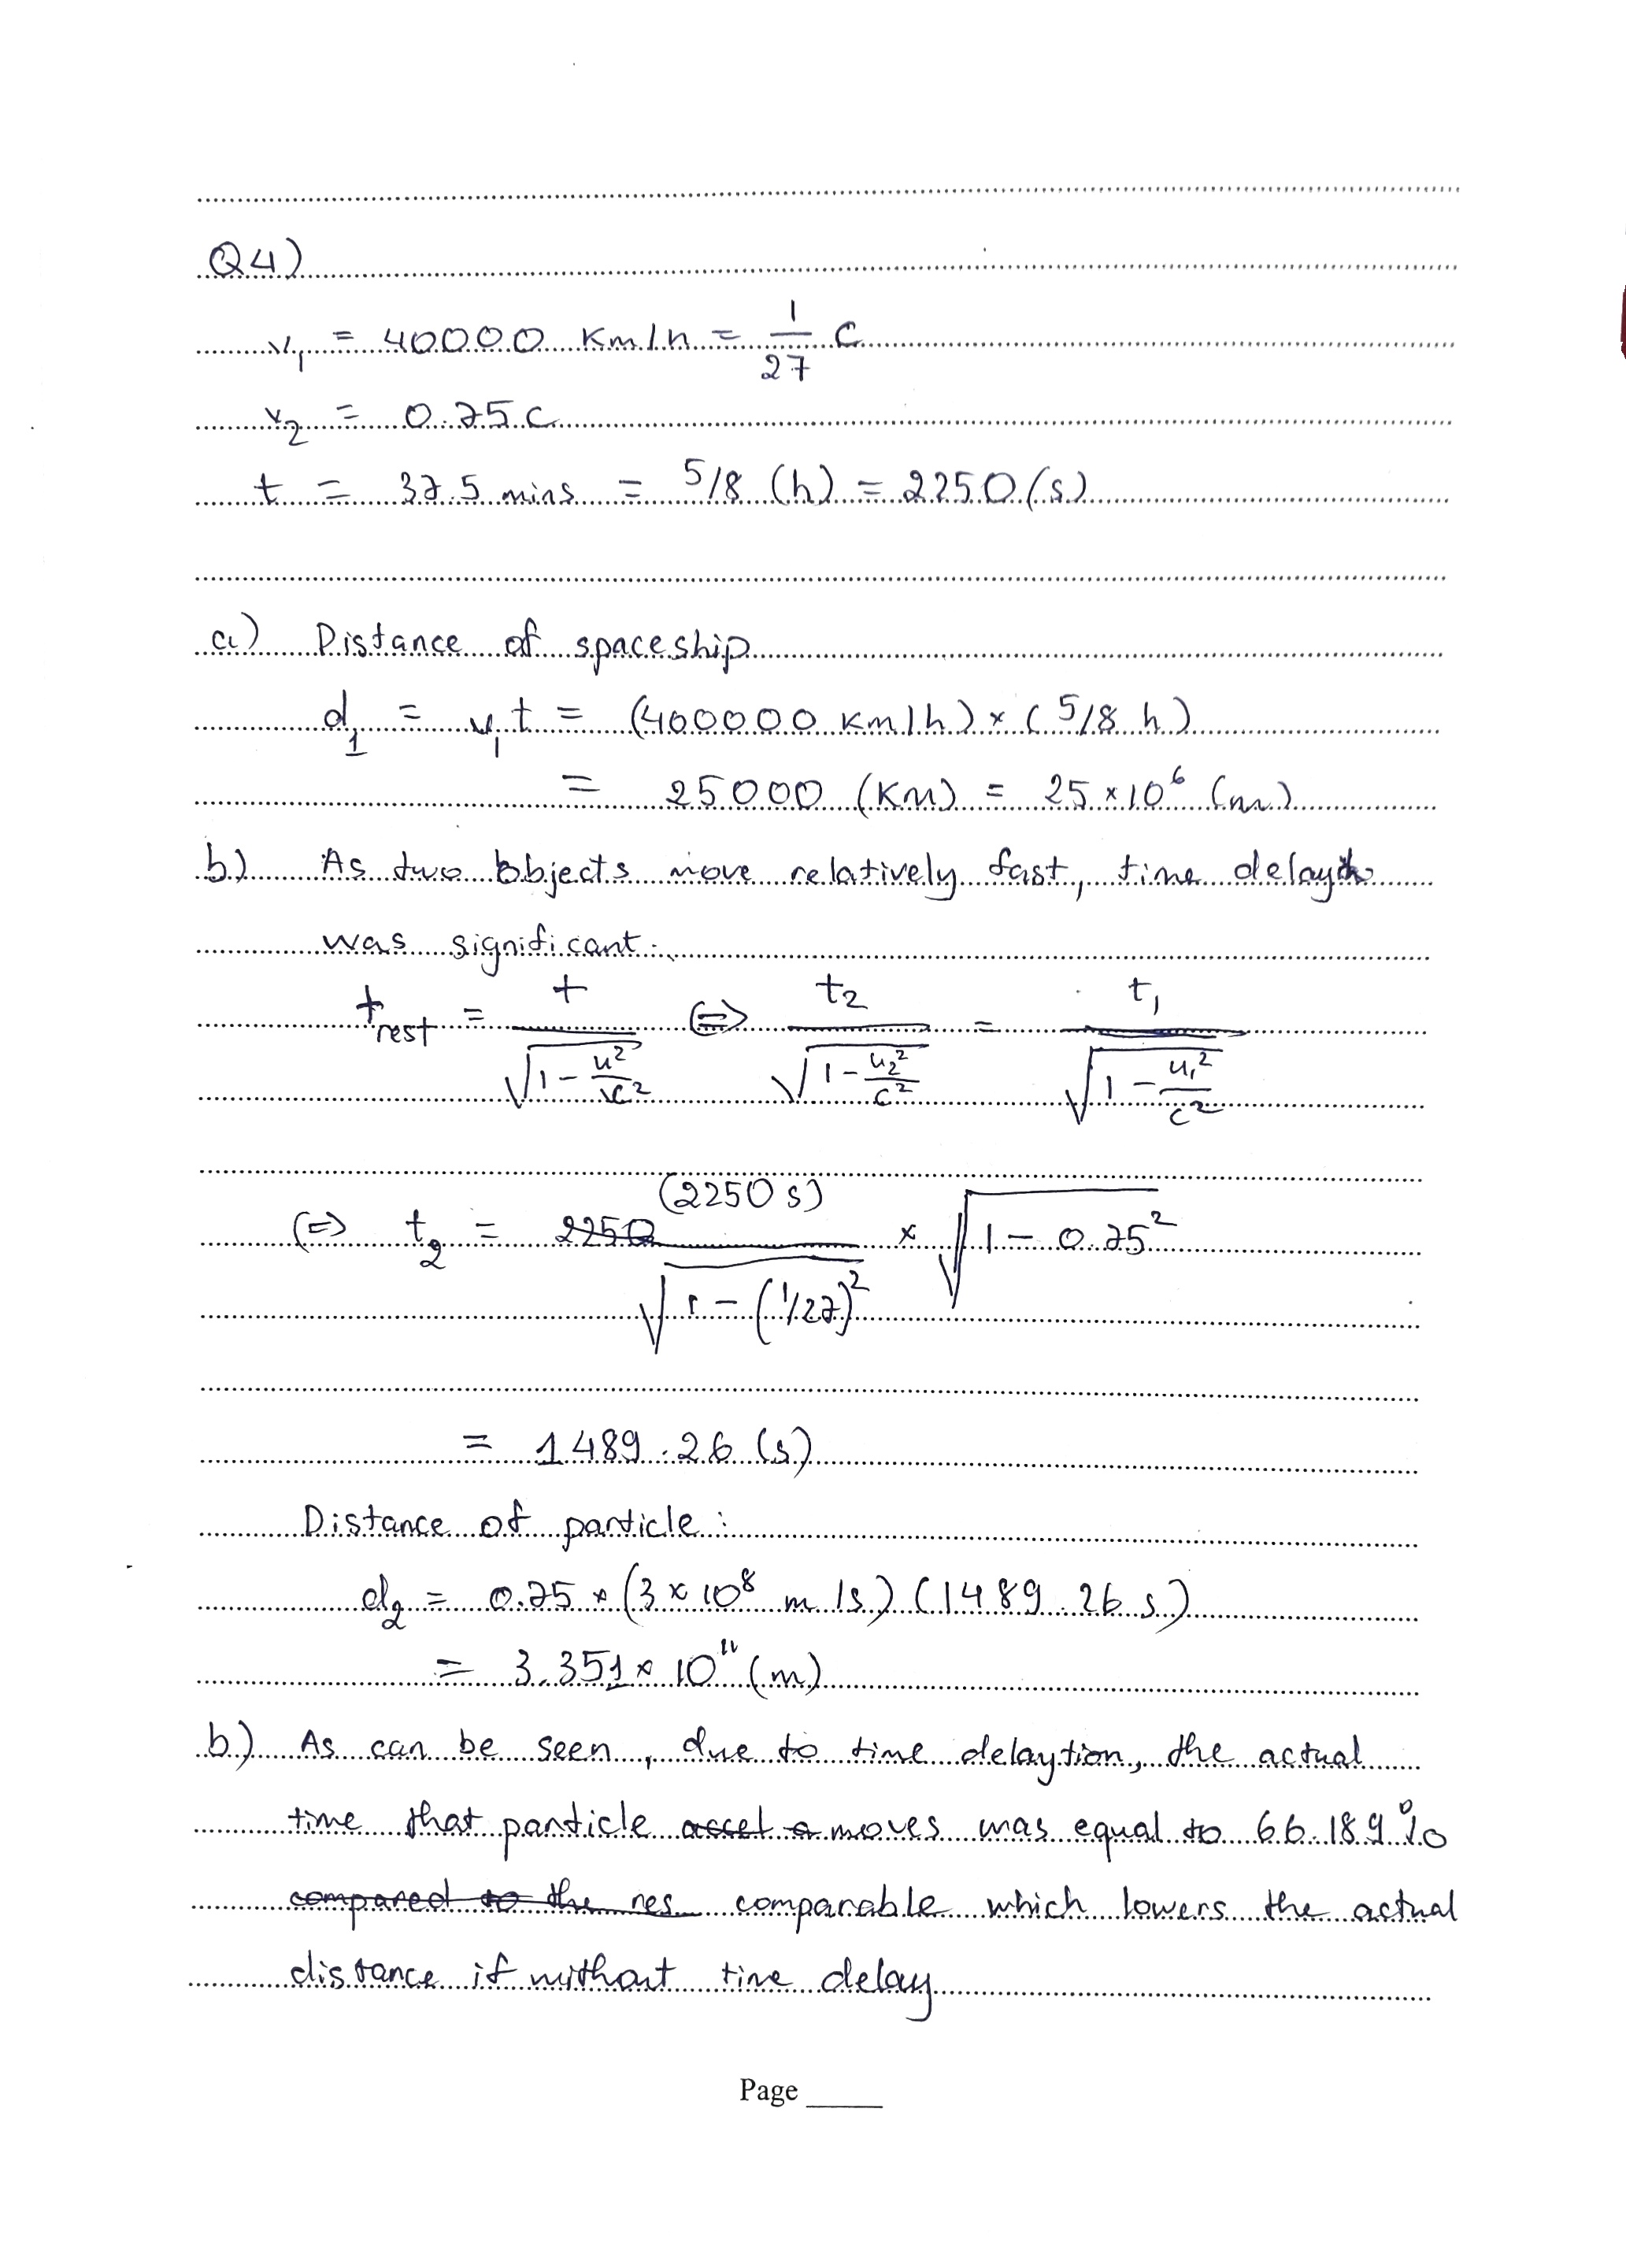 Q4)
v₁ = 40000 Km/h = 1/27 C
v₂ = 0.75c
t = 37.5 mins = 5/8 (h) = 2250 (s)
a) Distance of spaceship
d₁ = v₁t = (400000 km/h) × (5/8 h)
= 25000 (KM) = 25×10⁶ (m)
b) As two objects move relatively fast, time delay
was significant:
t_rest = t / √(1 - u²/c²) (=) t₂ / √(1 - u₂²/c²) = t₁ / √(1 - u₁²/c²)
(=) t₂ = 2250 (2250 s) / √(1 - (1/27)²) × √(1 - 0.75²)
= 1489.26 (s)
Distance of particle:
d₂ = 0.75 × (3 × 10⁸ m/s) (1489.26 s)
= 3.351 × 10¹¹ (m)
b) As can be seen, due to time delaytion, the actual
time that particle accel a moves was equal to 66.189%
compared to the res comparable which lowers the actual
distance if without time delay
Page _____